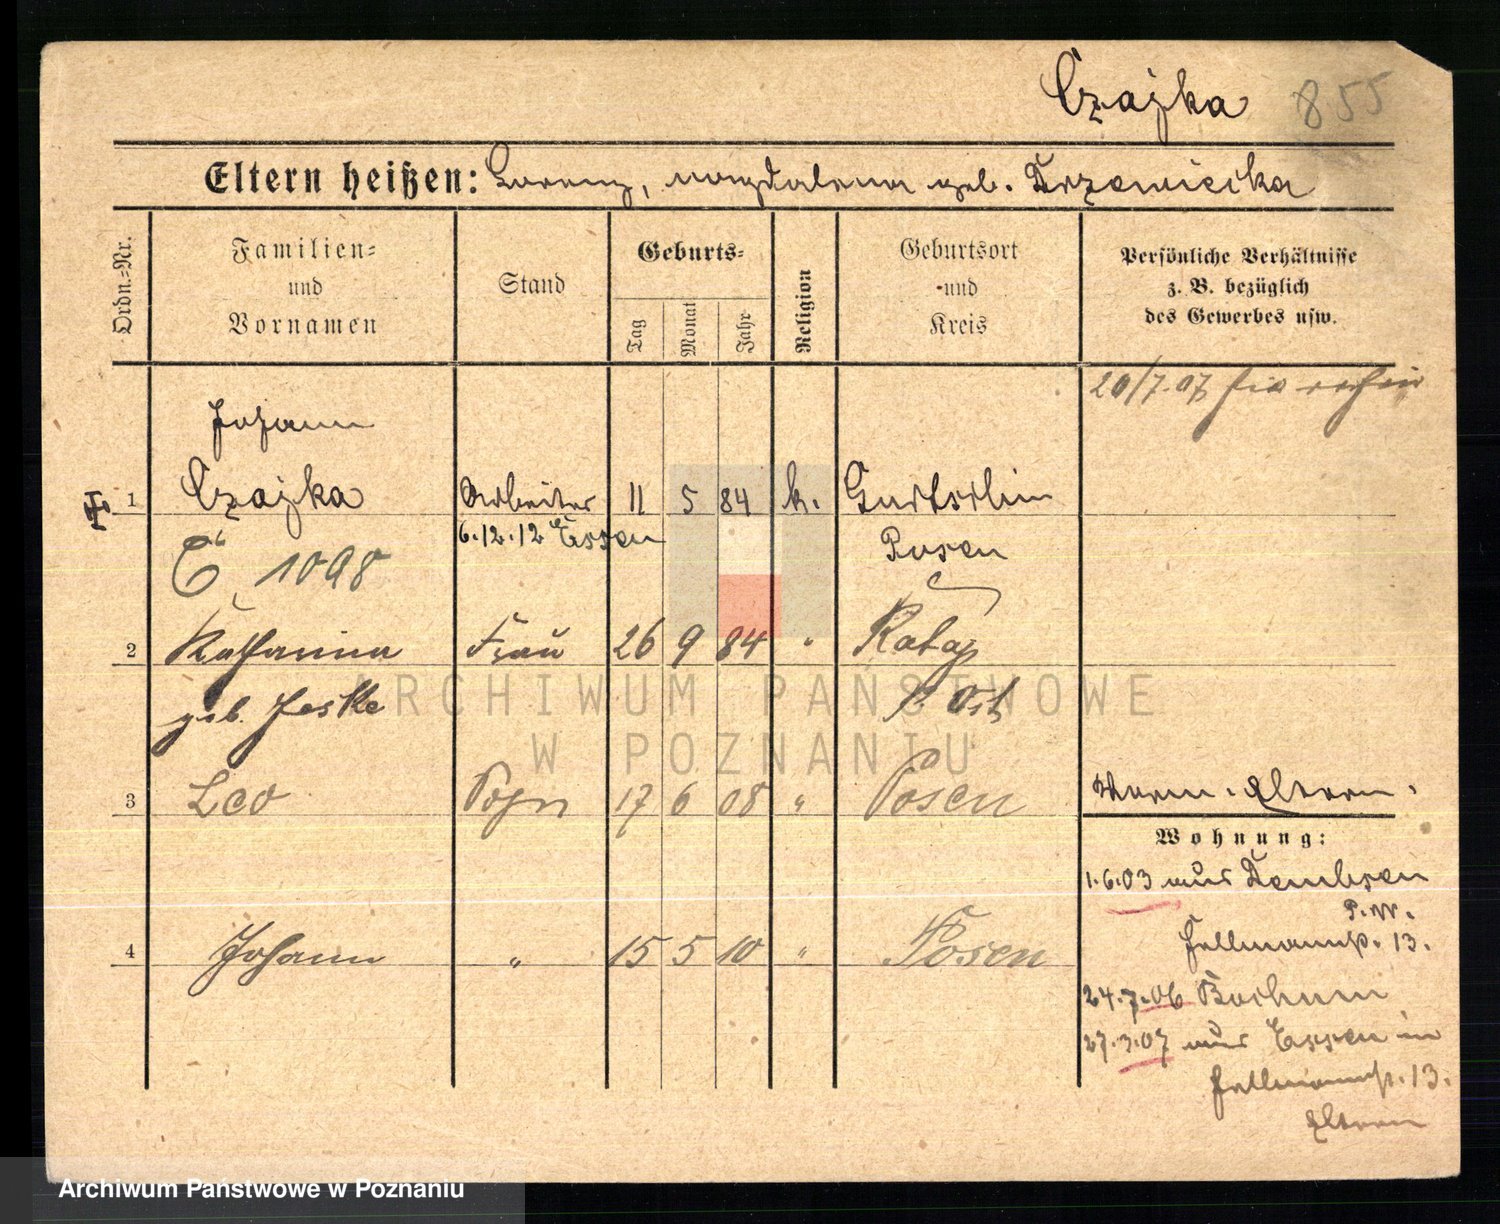 Czajka 855
Eltern heißen: Lorenz, Magdalena geb. Drzewiecka
Ordn.=Nr.
Familien=
und
Vornamen
Stand
Geburts=
Tag
Monat
Jahr
Religion
Geburtsort
und
Kreis
Persönliche Verhältnisse
z. B. bezüglich
des Gewerbes usw.
20/7.07
Johann
1 Czajka Arbeiter 11 5 84 k. Gurtschin
6.12.12 Essen Posen
E 1098
2 Katharina Frau 26 9 84 " Rataj
geb. Jeske P. Ost
3 Leo Sohn 17 6 08 " Posen
Eltern.
Wohnung:
1.6.03 aus Dembsen
P.W.
Hellmannstr. 13.
4 Johann " 15 5 10 " Posen
24.7.06 Bochum
27.3.07 aus Essen in
Hellmannstr. 13.
Eltern
ARCHIWUM PAŃSTWOWE
W POZNANIU
Archiwum Państwowe w Poznaniu